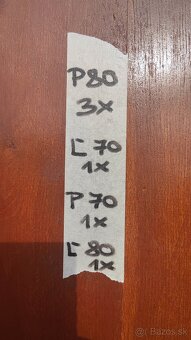 P80
3x
Ľ 70
1x
P 70
1x
Ľ 80
1x
Bazos.sk